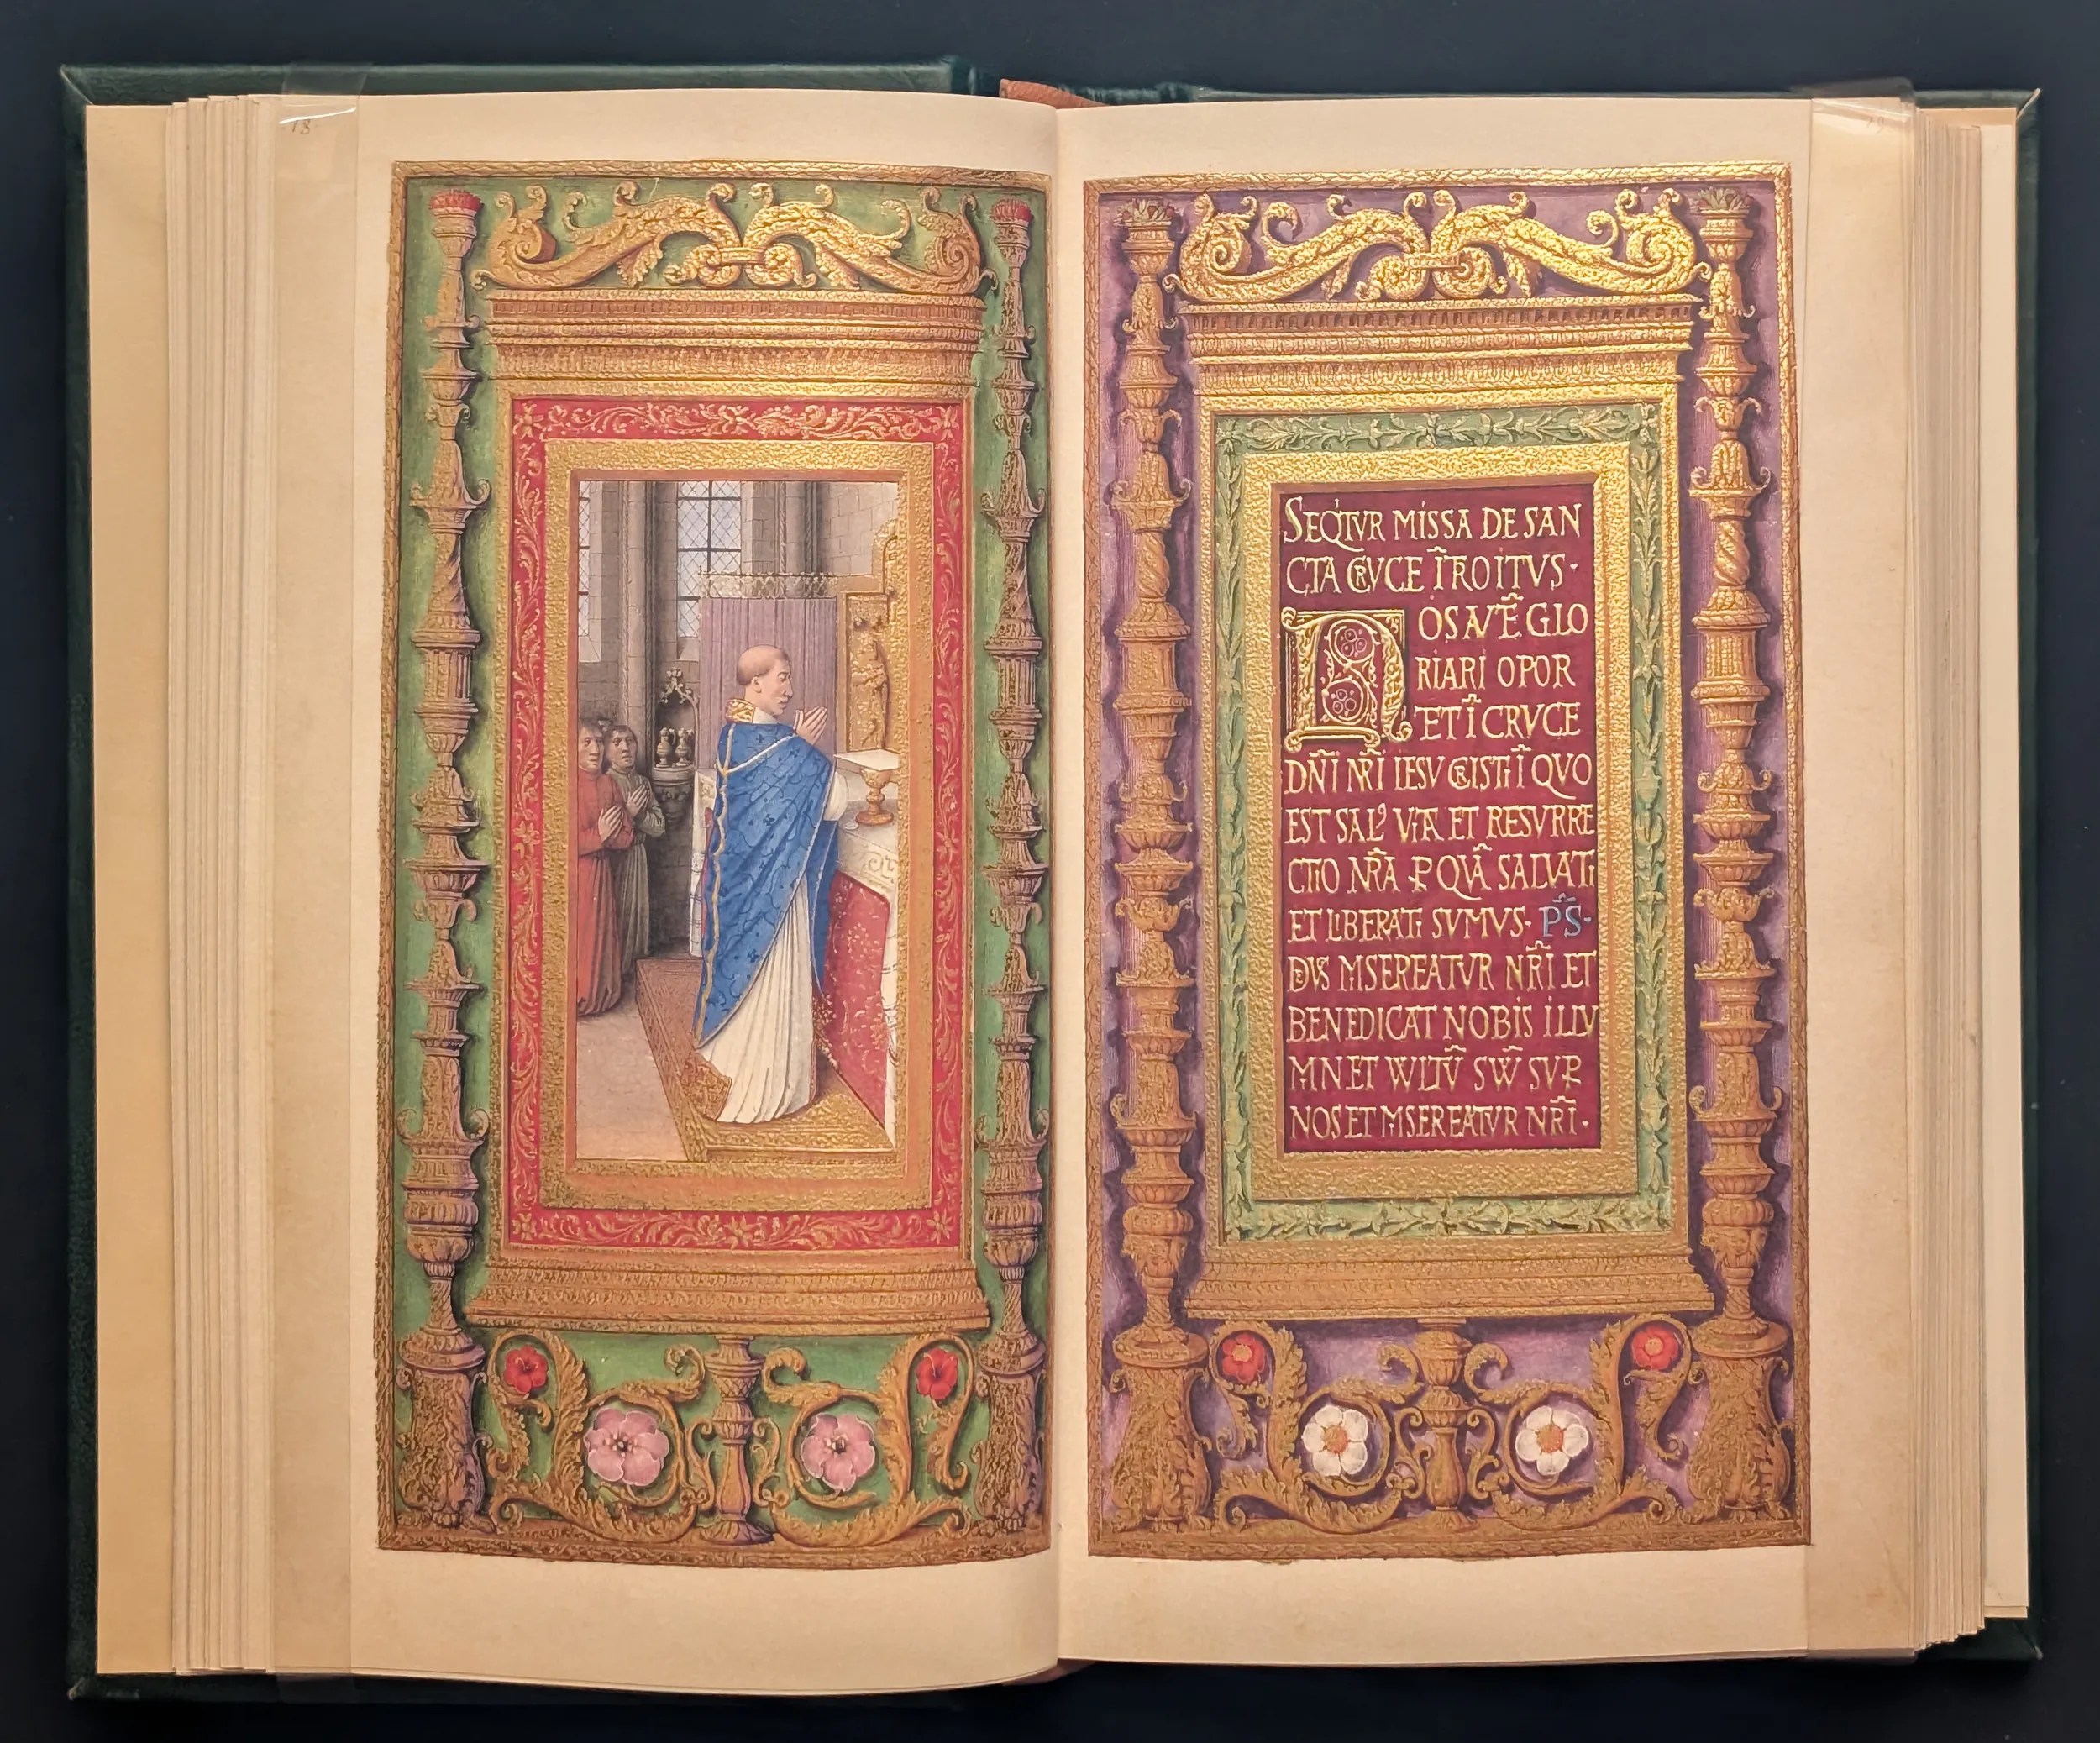 18
SEQ̇TVR MISSA DE SAN
CTA CRVCE ĨTROITVS·
NOS AVTẼ GLO
RIARI OPOR
TET Ĩ CRVCE
DÑI NR̃I IESV CRISTI Ĩ QVO
EST SALꝰ VITA ET RESVRRE
CTIO NR̃A ꝑ QVÃ SALVATI
ET LIBERATI SVMVS· PS̃·
DEVS MISEREATVR NR̃I ET
BENEDICAT NOBIS ILLV
MINET WLTṼ SVṼ SVꝑ
NOS ET MISEREATVR NR̃I·